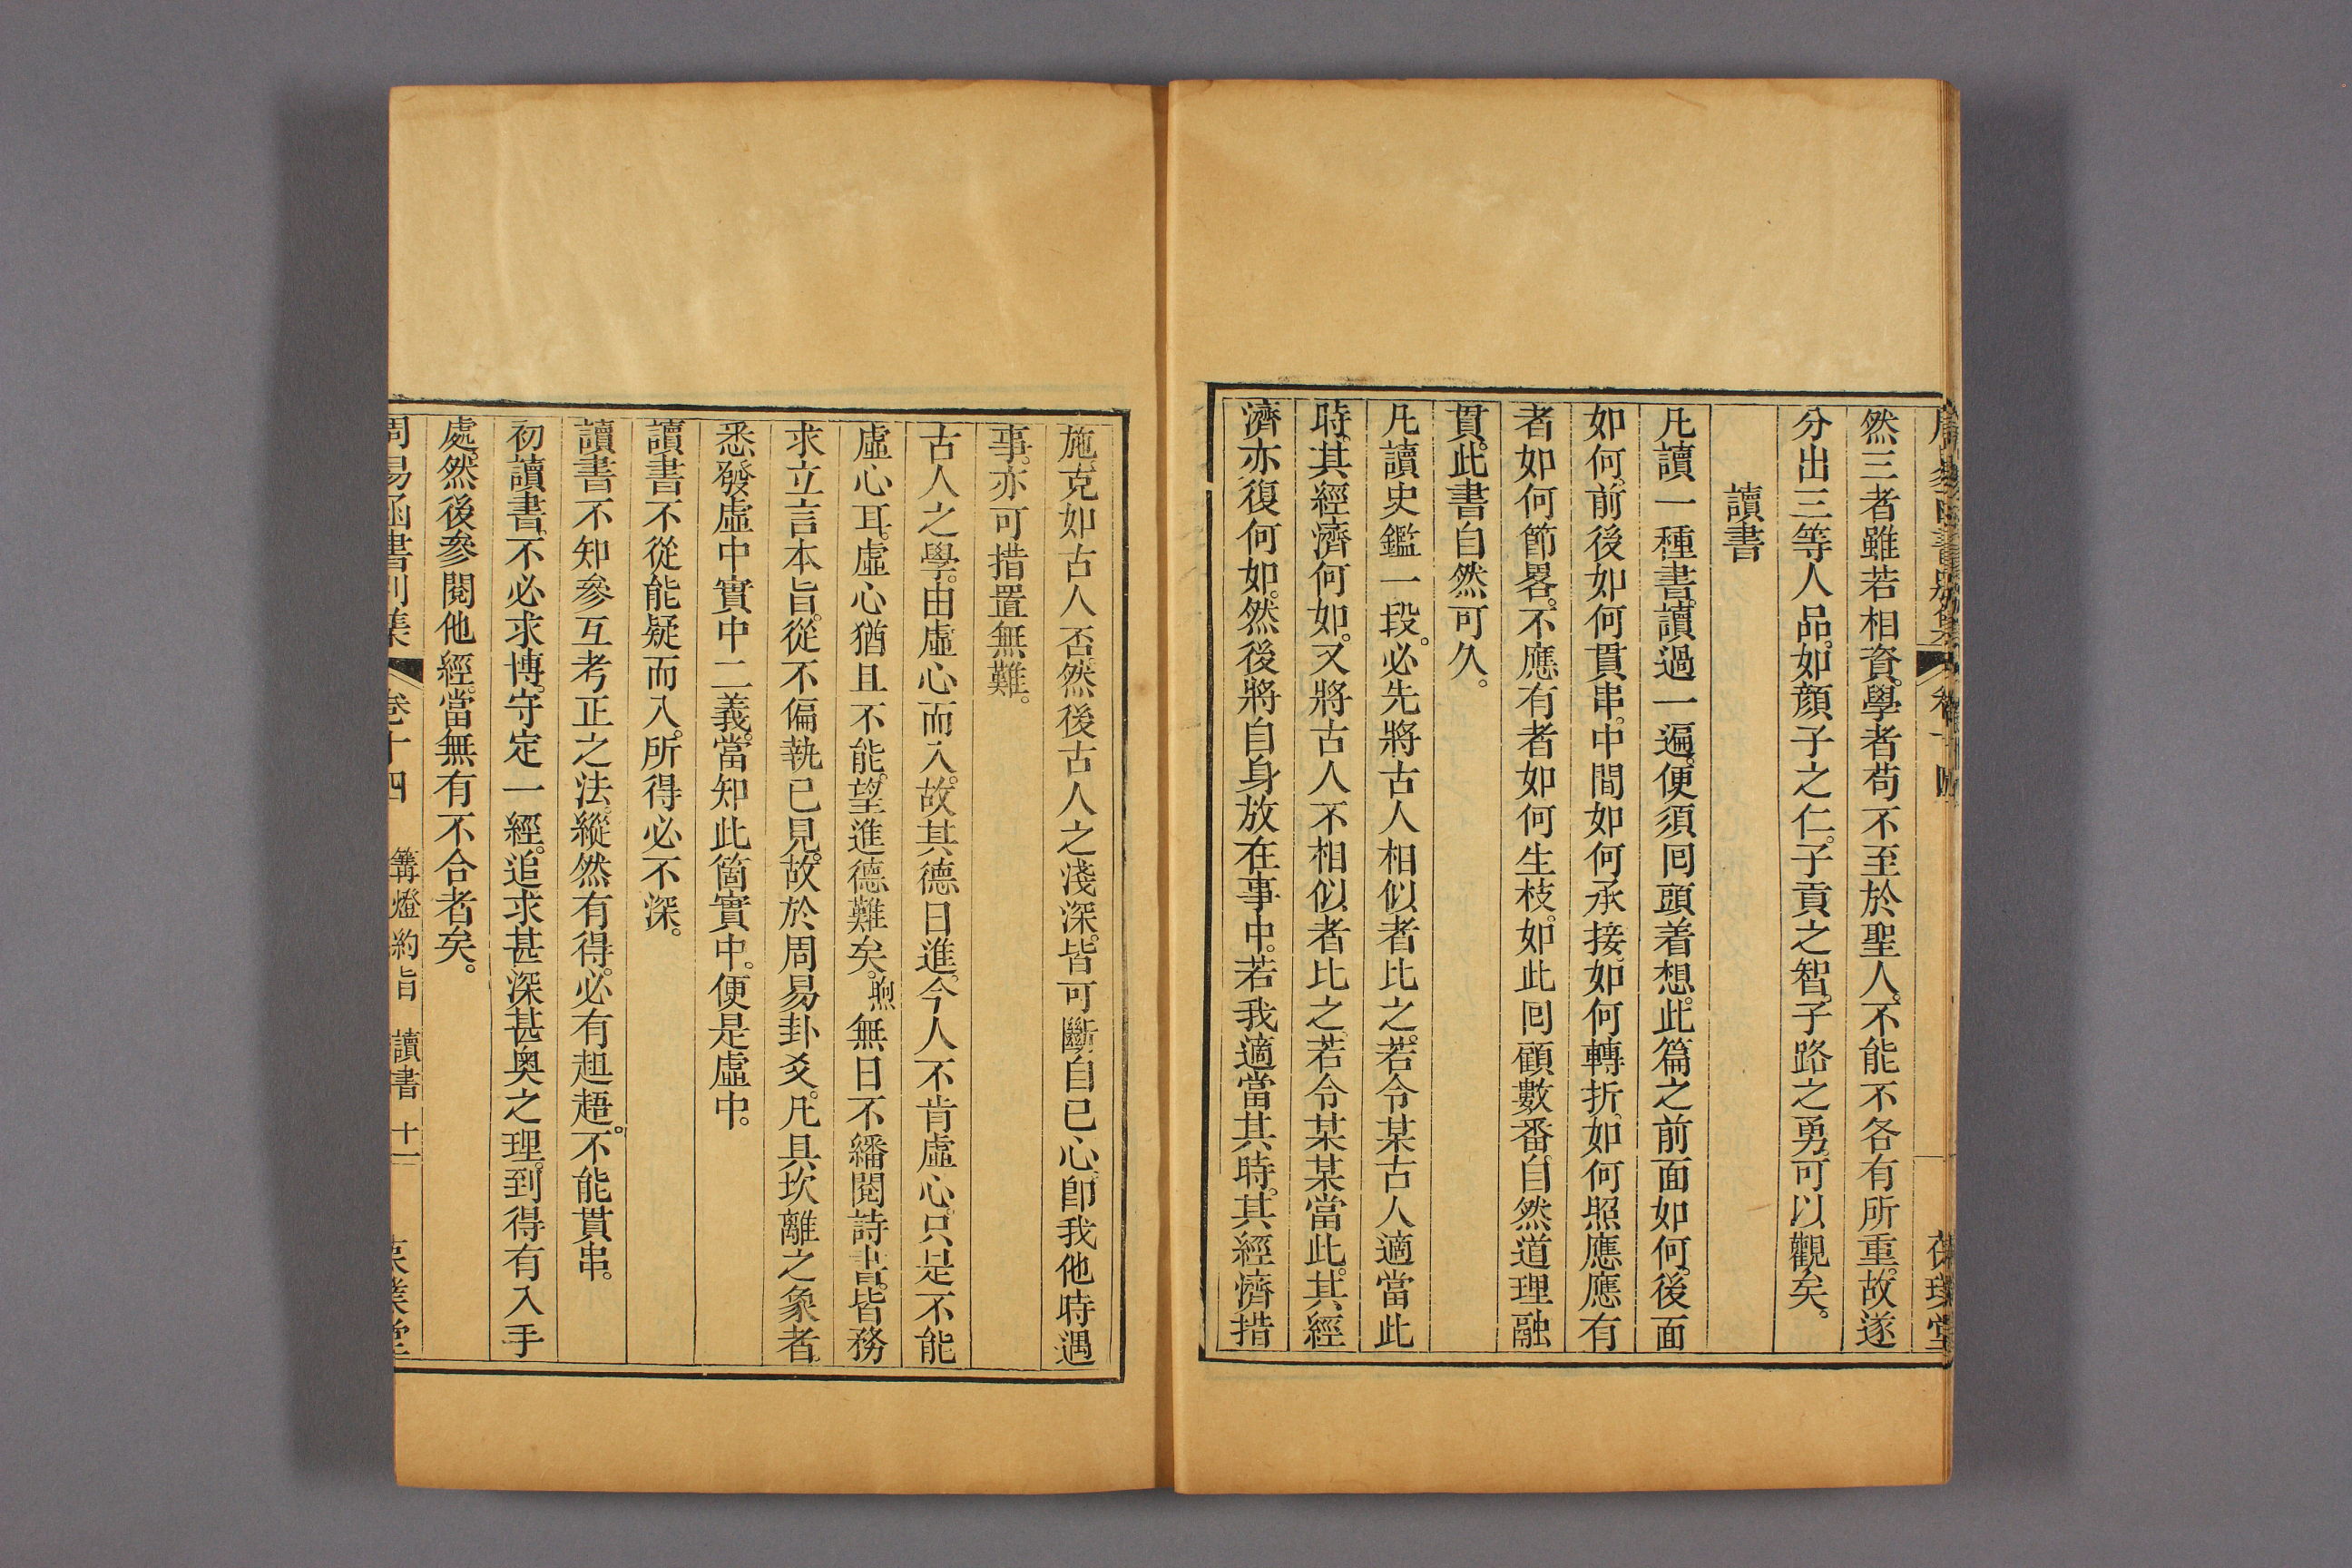 然三者雖若相資。學者苟不至於聖人。不能不各有所重。故遂
分出三等人品。如顏子之仁。子貢之智。子路之勇。可以觀矣。
讀書
凡讀一種書。讀過一遍。便須囘頭着想。此篇之前面如何。後面
如何。前後如何貫串。中間如何承接。如何轉折。如何照應。應有
者如何節畧。不應有者如何生枝。如此囘顧數番。自然道理融
貫。此書自然可久。
凡讀史鑑一段。必先將古人相似者比之。若令某古人適當此
時。其經濟何如。又將古人不相似者比之。若令某某當此。其經
濟亦復何如。然後將自身放在事中。若我適當其時。其經濟措
施克如古人否。然後古人之淺深。皆可斷自已心。卽我他時遇
事。亦可措置無難。
古人之學。由虛心而入。故其德日進。今人不肯虛心。只是不能
虛心耳。虛心猶且不能。望進德難矣。煦無日不繙閱詩書。皆務
求立言本旨。從不偏執已見。故於周易卦爻。凡具坎離之象者。
悉發虛中實中二義。當知此箇實中。便是虛中。
讀書不從能疑而入。所得必不深。
讀書不知參互考正之法。縱然有得。必有趄趤。不能貫串。
初讀書。不必求博。守定一經。追求甚深甚奧之理。到得有入手
處。然後參閱他經。當無有不合者矣。
周易函書別集 卷十四 篝燈約旨 讀書 十一